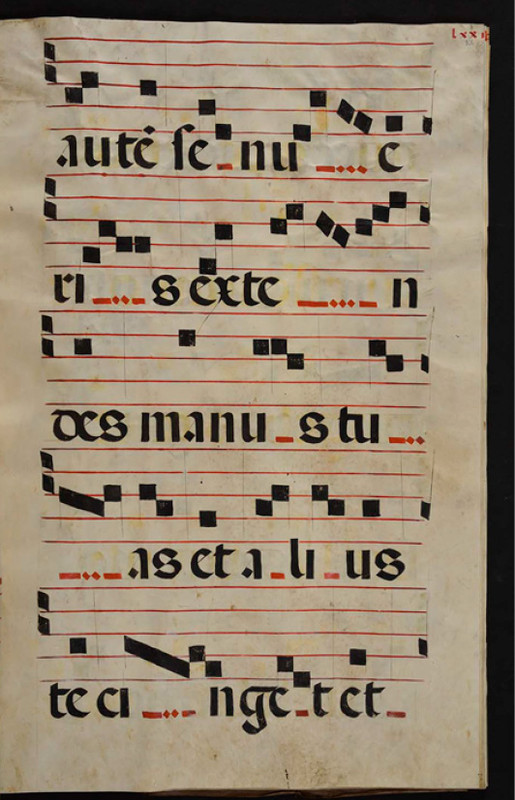 lxxii
autē se nu e
ri s exte n
des manu s tu
as et a li us
te ci nge t et